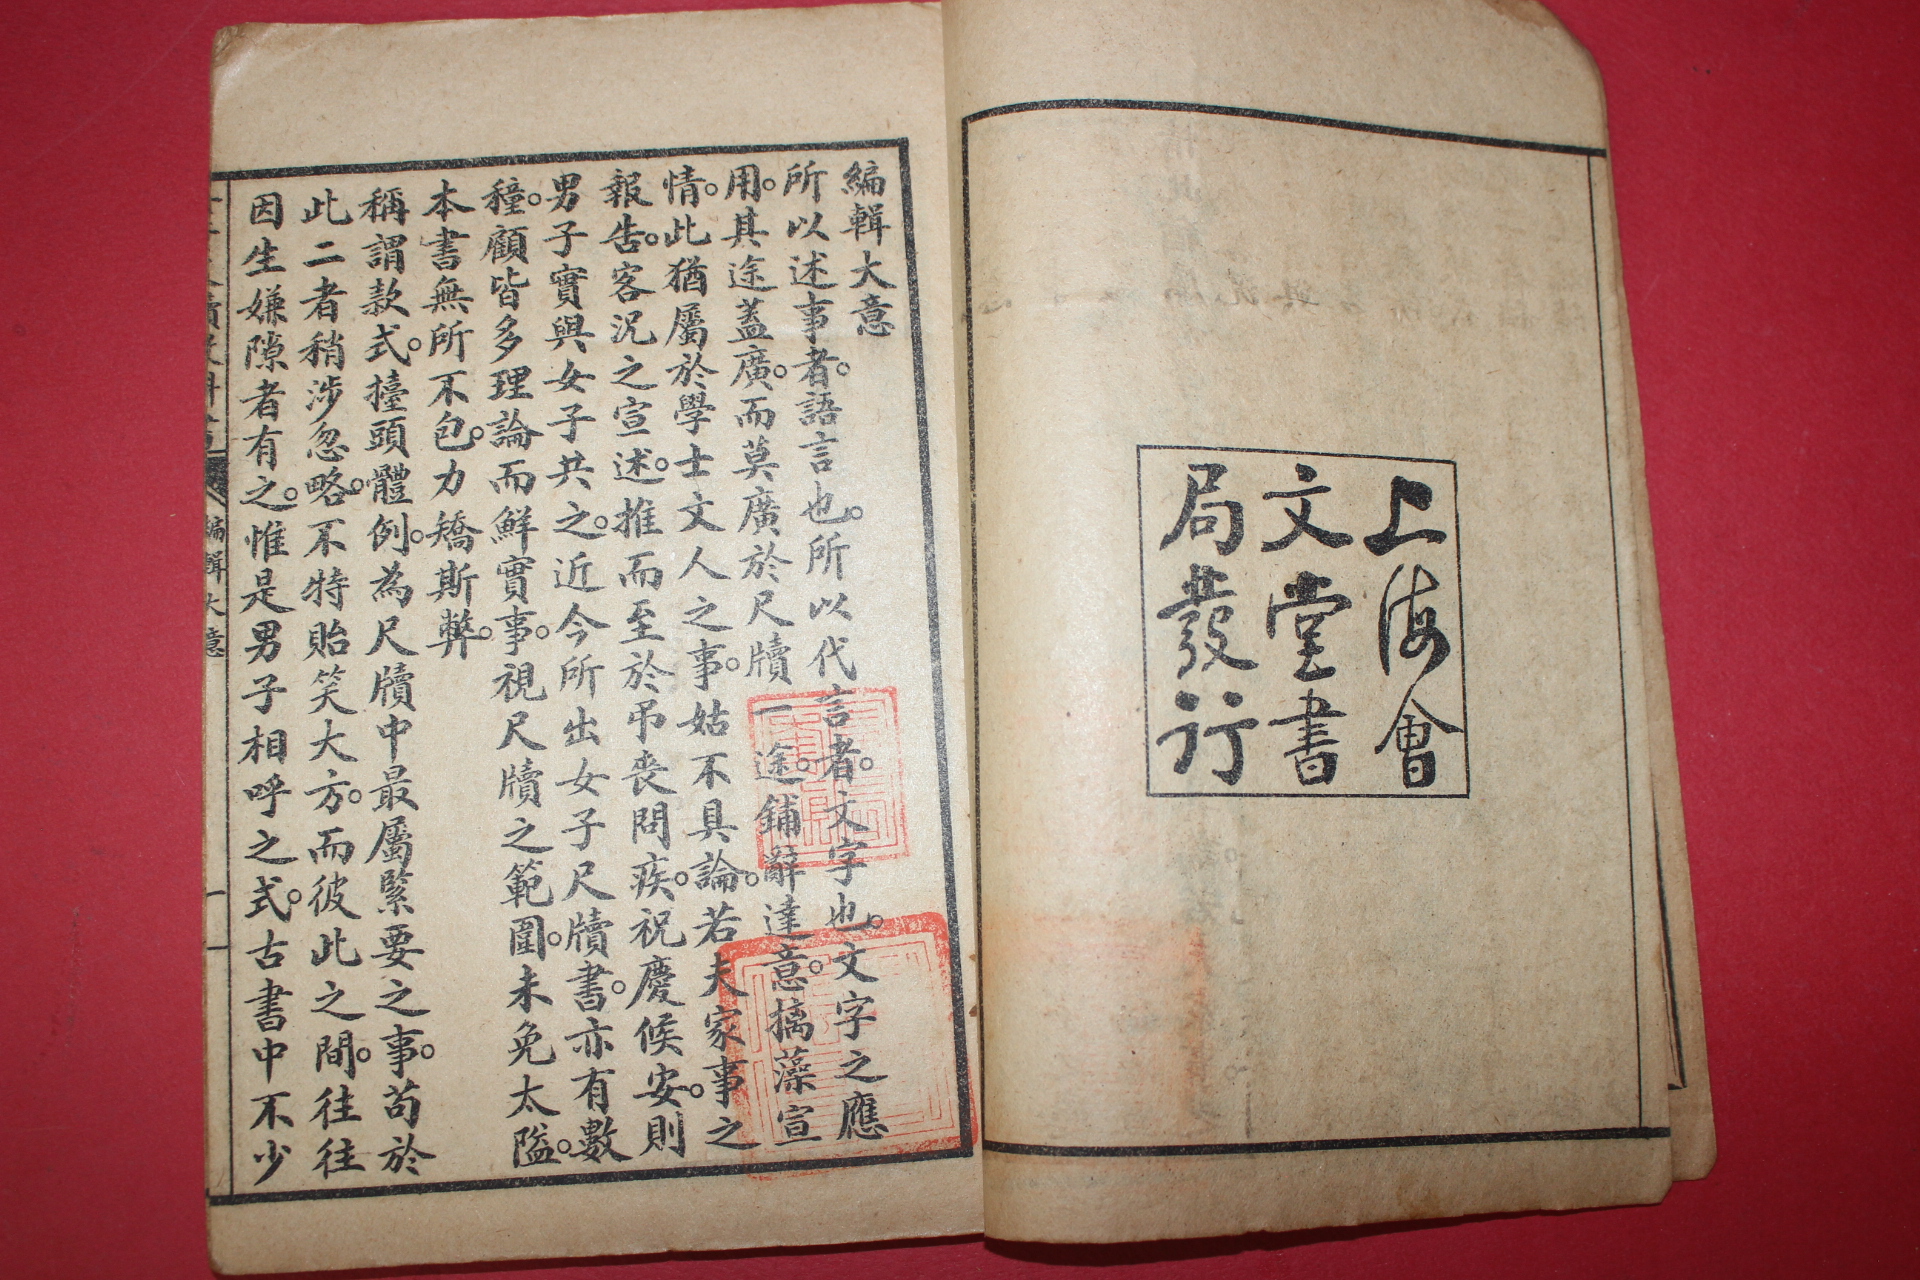 上海會
文堂書
局發行
編輯大意
所以述事者。語言也。所以代言者。文字也。文字之應
用。其途蓋廣。而莫廣於尺牘一途。鋪辭達意。摛藻宣
情。此猶屬於學士文人之事。姑不具論。若夫家事之
報告。客況之宣述。推而至於弔喪問疾。祝慶候安。則
男子實與女子共之。近今所出女子尺牘書。亦有數
種。顧皆多理論而鮮實事。視尺牘之範圍。未免太隘。
本書無所不包。力矯斯弊。
稱謂款式。擡頭體例。為尺牘中最屬緊要之事。苟於
此二者稍涉忽略。不特貽笑大方。而彼此之間。往往
因生嫌隙者有之。惟是男子相呼之式。古書中不少
編輯大意
一